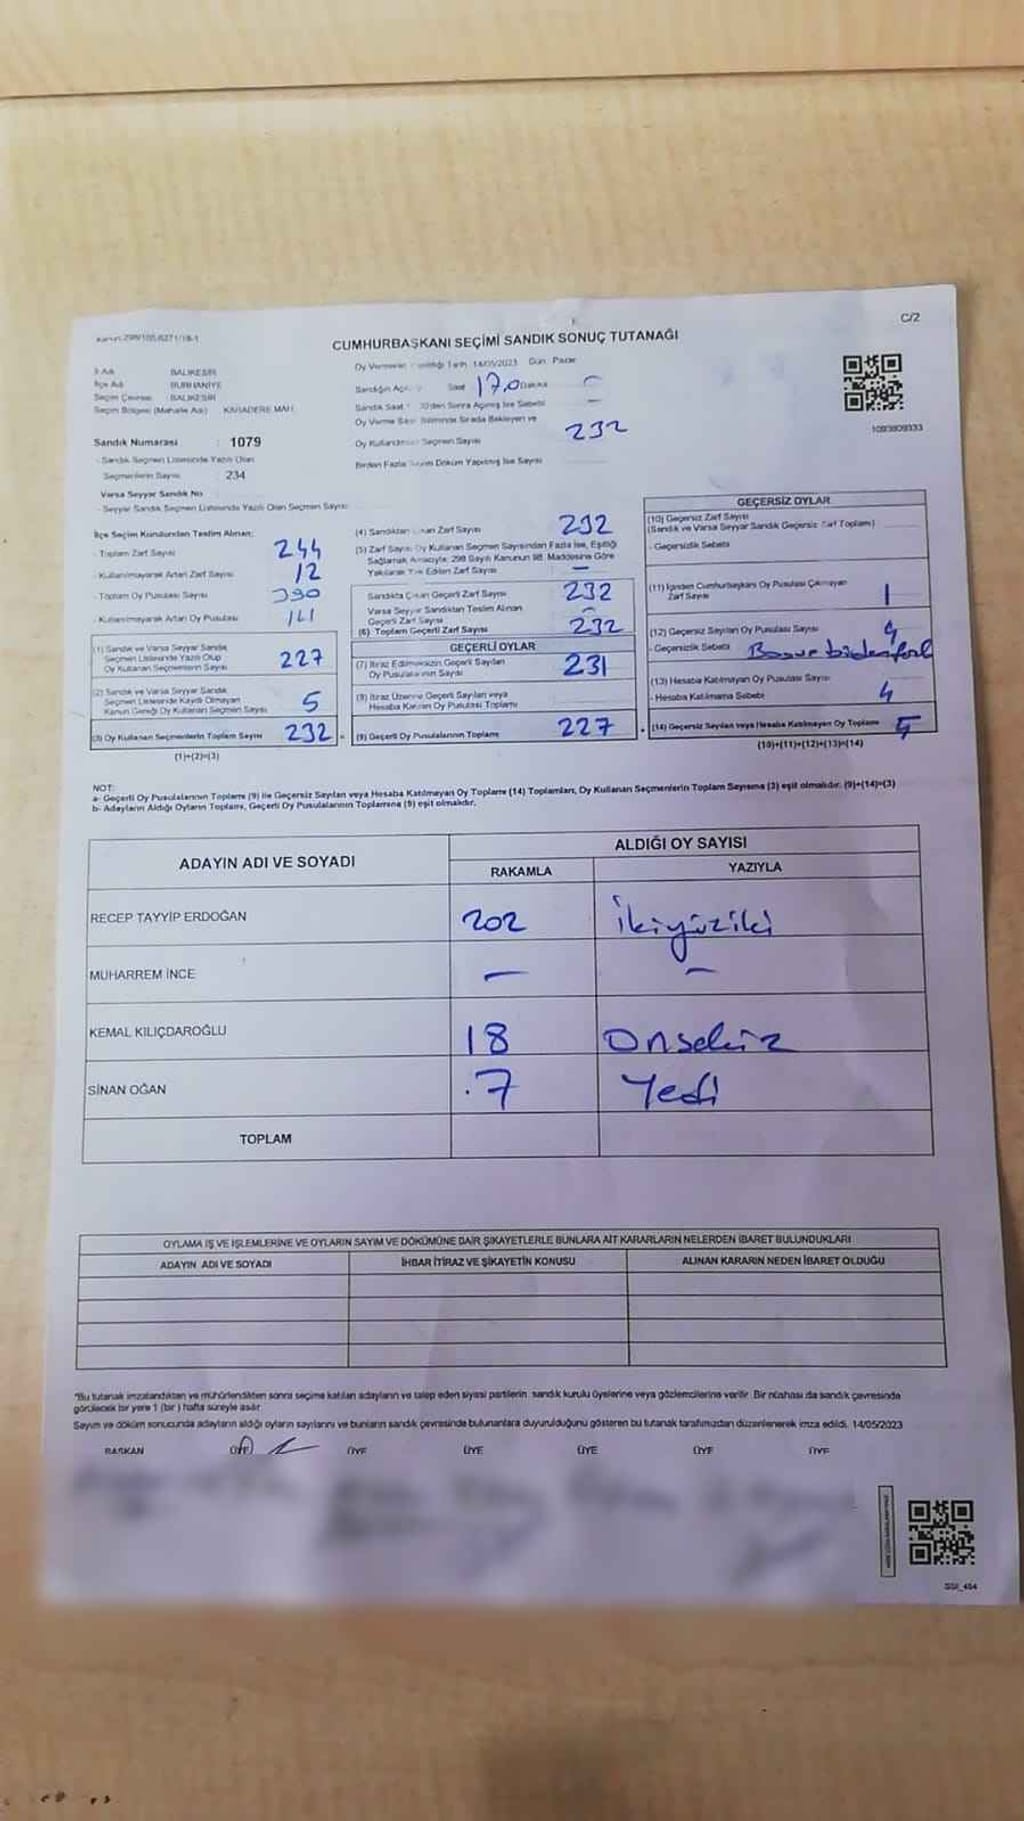 C/2
CUMHURBAŞKANI SEÇİMİ SANDIK SONUÇ TUTANAĞI
Oy Verme Tarihi 14/05/2023 Gün: Pazar
İl Adı BALIKESİR
İlçe Adı BURHANİYE
Seçim Çevresi BALIKESİR
Seçim Bölgesi (Mahalle Adı) KARADERE MAH.
Saat 17.0 Dakika
Oy Kullandırılan Seçmen Sayısı 232
1093809333
Sandık Numarası : 1079
- Sandık Seçmen Listesinde Yazılı Olan
Seçmenlerin Sayısı : 234
Birden Fazla Sayım Döküm Yapılmış İse Sayısı
Varsa Seyyar Sandık No
- Seyyar Sandık Seçmen Listesinde Yazılı Olan Seçmen Sayısı
İlçe Seçim Kurulundan Teslim Alınan;
- Toplam Zarf Sayısı 244
- Kullanılmayarak Artan Zarf Sayısı 12
- Toplam Oy Pusulası Sayısı 390
- Kullanılmayarak Artan Oy Pusulası 161
(1) Sandık ve Varsa Seyyar Sandık
Seçmen Listesinde Yazılı Olup
Oy Kullanan Seçmenlerin Sayısı 227
(2) Sandık ve Varsa Seyyar Sandık
Seçmen Listesinde Kaydı Olmayan
Kanun Gereği Oy Kullanan Seçmenlerin Sayısı 5
(3) Oy Kullanan Seçmenlerin Toplam Sayısı 232
(1)+(2)=(3)
(4) Sandıktan Çıkan Zarf Sayısı 232
(5) Zarf Sayısı Oy Kullanan Seçmen Sayısından Fazla İse, Eşitliği
Sağlamak Amacıyla; 298 Sayılı Kanunun 98. Maddesine Göre
Yakılarak Yok Edilen Zarf Sayısı –
Sandıkta Çıkan Geçerli Zarf Sayısı 232
Varsa Seyyar Sandıktan Teslim Alınan
Geçerli Zarf Sayısı –
(6) Toplam Geçerli Zarf Sayısı 232
GEÇERLİ OYLAR
(7) İtiraz Edilmeksizin Geçerli Sayılan
Oy Pusulalarının Sayısı 231
(8) İtiraz Üzerine Geçerli Sayılan veya
Hesaba Katılan Oy Pusulası Toplamı
(9) Geçerli Oy Pusulalarının Toplamı 227
GEÇERSİZ OYLAR
(10) Geçersiz Zarf Sayısı
(Sandık ve Varsa Seyyar Sandık Geçersiz Zarf Toplamı)
- Geçersizlik Sebebi
(11) İçinden Cumhurbaşkanı Oy Pusulası Çıkmayan
Zarf Sayısı 1
(12) Geçersiz Sayılan Oy Pusulası Sayısı
- Geçersizlik Sebebi
(13) Hesaba Katılmayan Oy Pusulası Sayısı 4
- Hesaba Katılmama Sebebi
(14) Geçersiz Sayılan veya Hesaba Katılmayan Oy Toplamı 5
(10)+(11)+(12)+(13)=(14)
NOT:
a- Geçerli Oy Pusulalarının Toplamı (9) ile Geçersiz Sayılan veya Hesaba Katılmayan Oy Toplamı (14) Toplamları, Oy Kullanan Seçmenlerin Toplam Sayısına (3) eşit olmalıdır. (9)+(14)=(3)
b- Adayların Aldığı Oyların Toplamı, Geçerli Oy Pusulalarının Toplamına (9) eşit olmalıdır.
ADAYIN ADI VE SOYADI
ALDIĞI OY SAYISI
RAKAMLA YAZIYLA
RECEP TAYYİP ERDOĞAN 202 İkiyüziki
MUHARREM İNCE – –
KEMAL KILIÇDAROĞLU 18 Onsekiz
SİNAN OĞAN .7 Yedi
TOPLAM
OYLAMA İŞ VE İŞLEMLERİNE VE OYLARIN SAYIM VE DÖKÜMÜNE DAİR ŞİKAYETLERLE BUNLARA AİT KARARLARIN NELERDEN İBARET BULUNDUKLARI
ADAYIN ADI VE SOYADI İHBAR İTİRAZ VE ŞİKAYETİN KONUSU ALINAN KARARIN NEDEN İBARET OLDUĞU
"Bu tutanak imzalandıktan ve mühürlendikten sonra seçime katılan adayların ve talep eden siyasi partilerin sandık kurulu üyelerine veya gözlemcilerine verilir. Bir nüshası da sandık çevresinde
görülecek bir yere 1 (bir) hafta süreyle asılır.
Sayım ve döküm sonucunda adayların aldığı oyların sayılarını ve bunların sandık çevresinde bulunanlara duyurulduğunu gösteren bu tutanak tarafımızdan düzenlenerek imza edildi. 14/05/2023
BAŞKAN ÜYE ÜYE ÜYE ÜYE ÜYE ÜYE